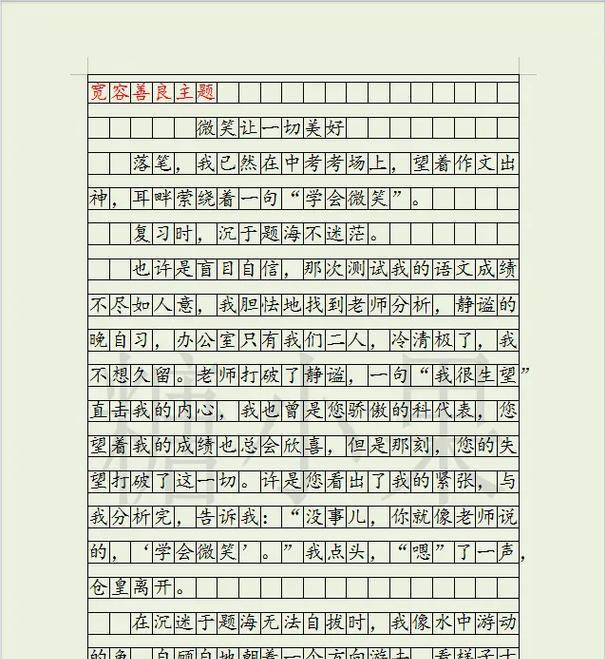 宽容善良主题
微笑让一切美好
落笔，我已然在中考考场上，望着作文出
神，耳畔萦绕着一句“学会微笑”。
复习时，沉于题海不迷茫。
也许是盲目自信，那次测试我的语文成绩
不尽如人意，我胆怯地找到老师分析，静谧的
晚自习，办公室只有我们二人，冷清极了，我
不想久留。老师打破了静谧，一句“我很生望”
直击我的内心，我也曾是您骄傲的科代表，您
望着我的成绩也总会欣喜，但是那刻，您的失
望打破了这一切。许是您看出了我的紧张，与
我分析完，告诉我：“没事儿，你就像老师说
的，‘学会微笑’。”我点头，“嗯”了一声，
仓皇离开。
在沉迷于题海无法自拔时，我像水中游动
的鱼，自顾自地朝着一个方向游去，看样子十
糖小果